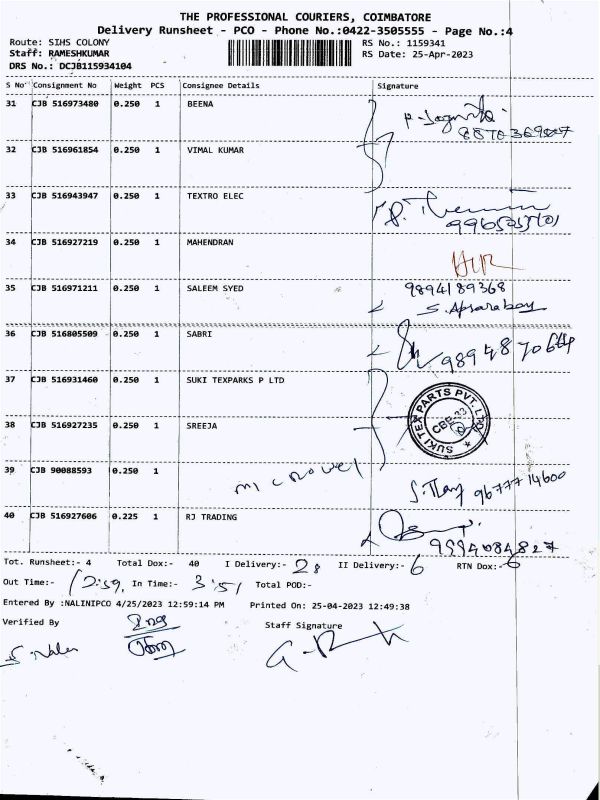 THE PROFESSIONAL COURIERS, COIMBATORE
Delivery Runsheet - PCO - Phone No.:0422-3505555 - Page No.:4
Route: SIHS COLONY RS No.: 1159341
Staff: RAMESHKUMAR RS Date: 25-Apr-2023
DRS No.: DCJB115934104
S No Consignment No Weight PCS Consignee Details Signature
31 CJB 516973480 0.250 1 BEENA
32 CJB 516961854 0.250 1 VIMAL KUMAR
33 CJB 516943947 0.250 1 TEXTRO ELEC
34 CJB 516927219 0.250 1 MAHENDRAN
35 CJB 516971211 0.250 1 SALEEM SYED 9894189368
36 CJB 516805509 0.250 1 SABRI
37 CJB 516931460 0.250 1 SUKI TEXPARKS P LTD
SUKI TEX PARTS PVT. LTD
38 CJB 516927235 0.250 1 SREEJA
39 CJB 90088593 0.250 1
9677714600
40 CJB 516927606 0.225 1 RJ TRADING
9994084827
Tot. Runsheet:- 4 Total Dox:- 40 I Delivery:- 28 II Delivery:- 6 RTN Dox:- 6
Out Time:- 12:59, In Time:- 3:51 Total POD:-
Entered By :NALINIPCO 4/25/2023 12:59:14 PM Printed On: 25-04-2023 12:49:38
Verified By Staff Signature